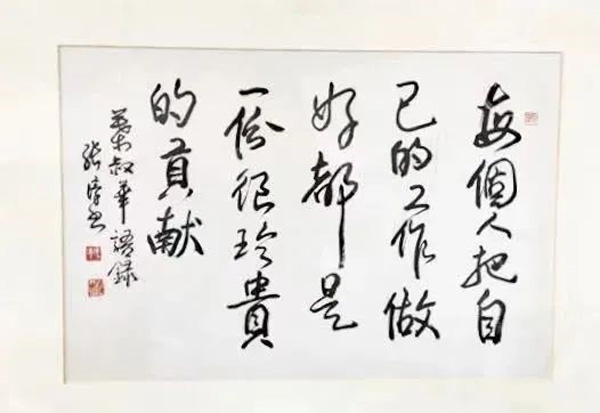 每個人把自
已的工作做
好都是
一份很珍貴
的貢献
葉叔華語録
張
書